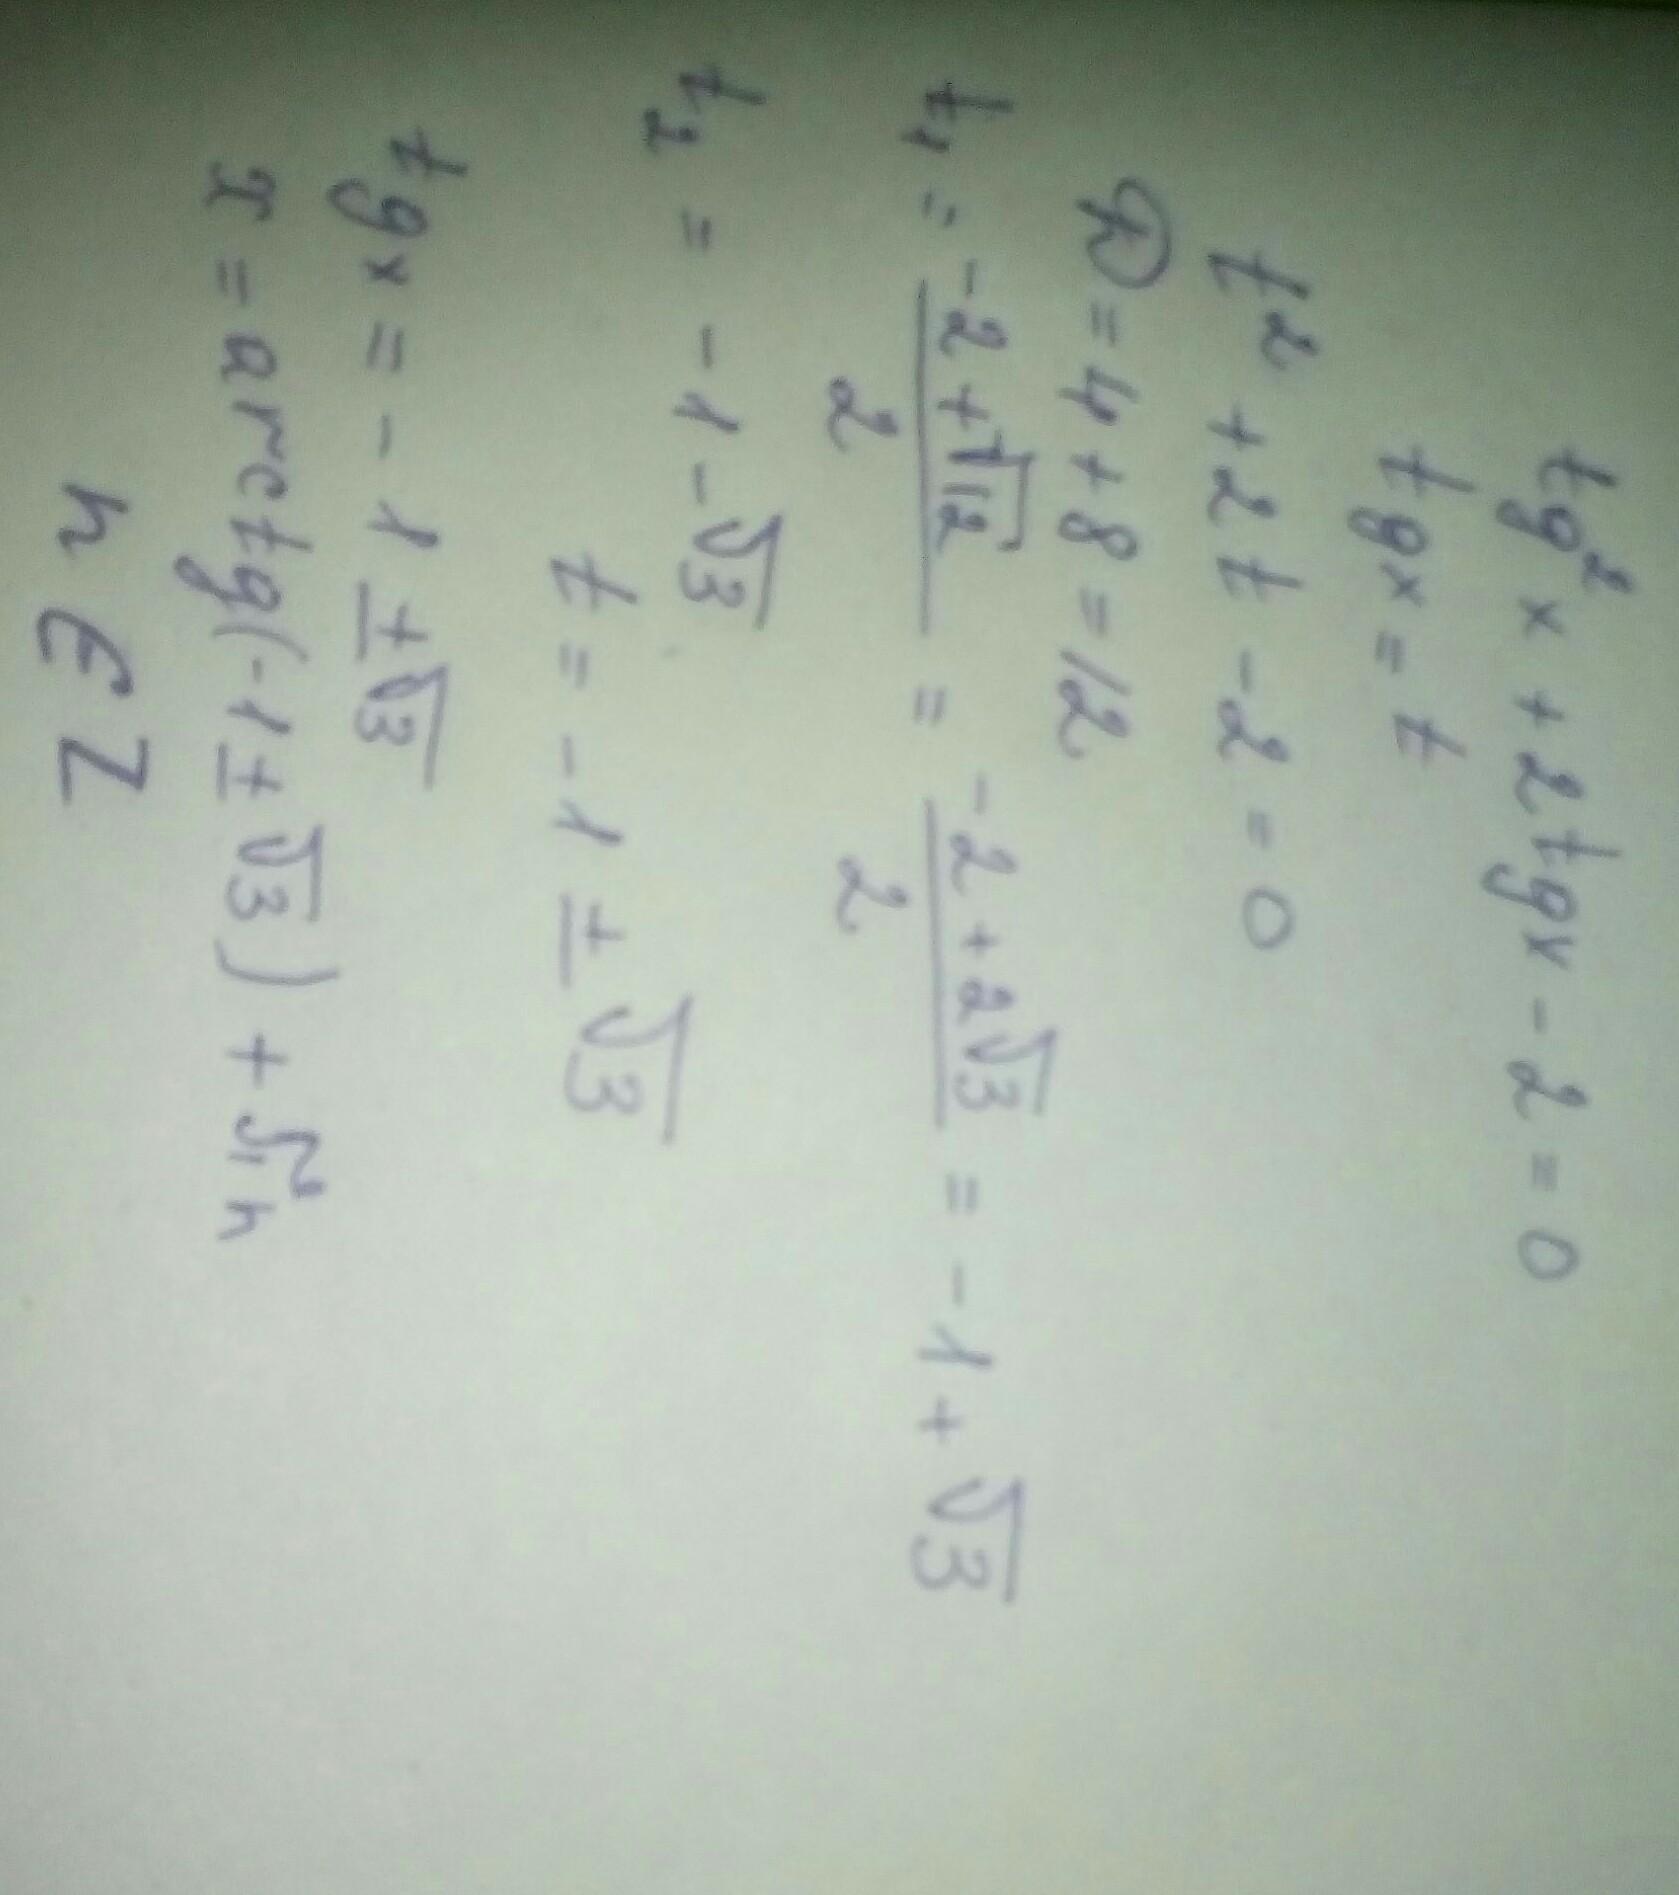 tg²x + 2tgx - 2 = 0
tgx = t
t² + 2t - 2 = 0
D = 4 + 8 = 12
t₁ = (-2 + √12)/2 = (-2 + 2√3)/2 = -1 + √3
t₂ = -1 - √3
t = -1 ± √3
tgx = -1 ± √3
x = arctg(-1 ± √3) + πn
n ∈ Z